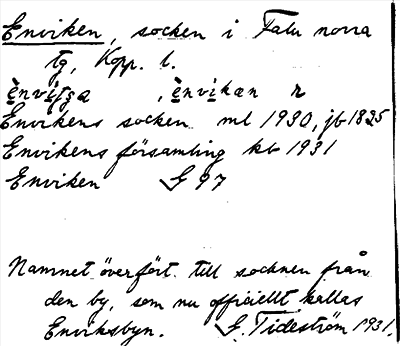 Enviken, socken i Falu norra
tg, Kopp. l.
Envikens socken ml 1930, jb 1825
Envikens församling kb 1931
Enviken G 97
Namnet överfört till socknen från
den by, som nu officiellt kallas
Enviksbyn. G. Tideström 1931.